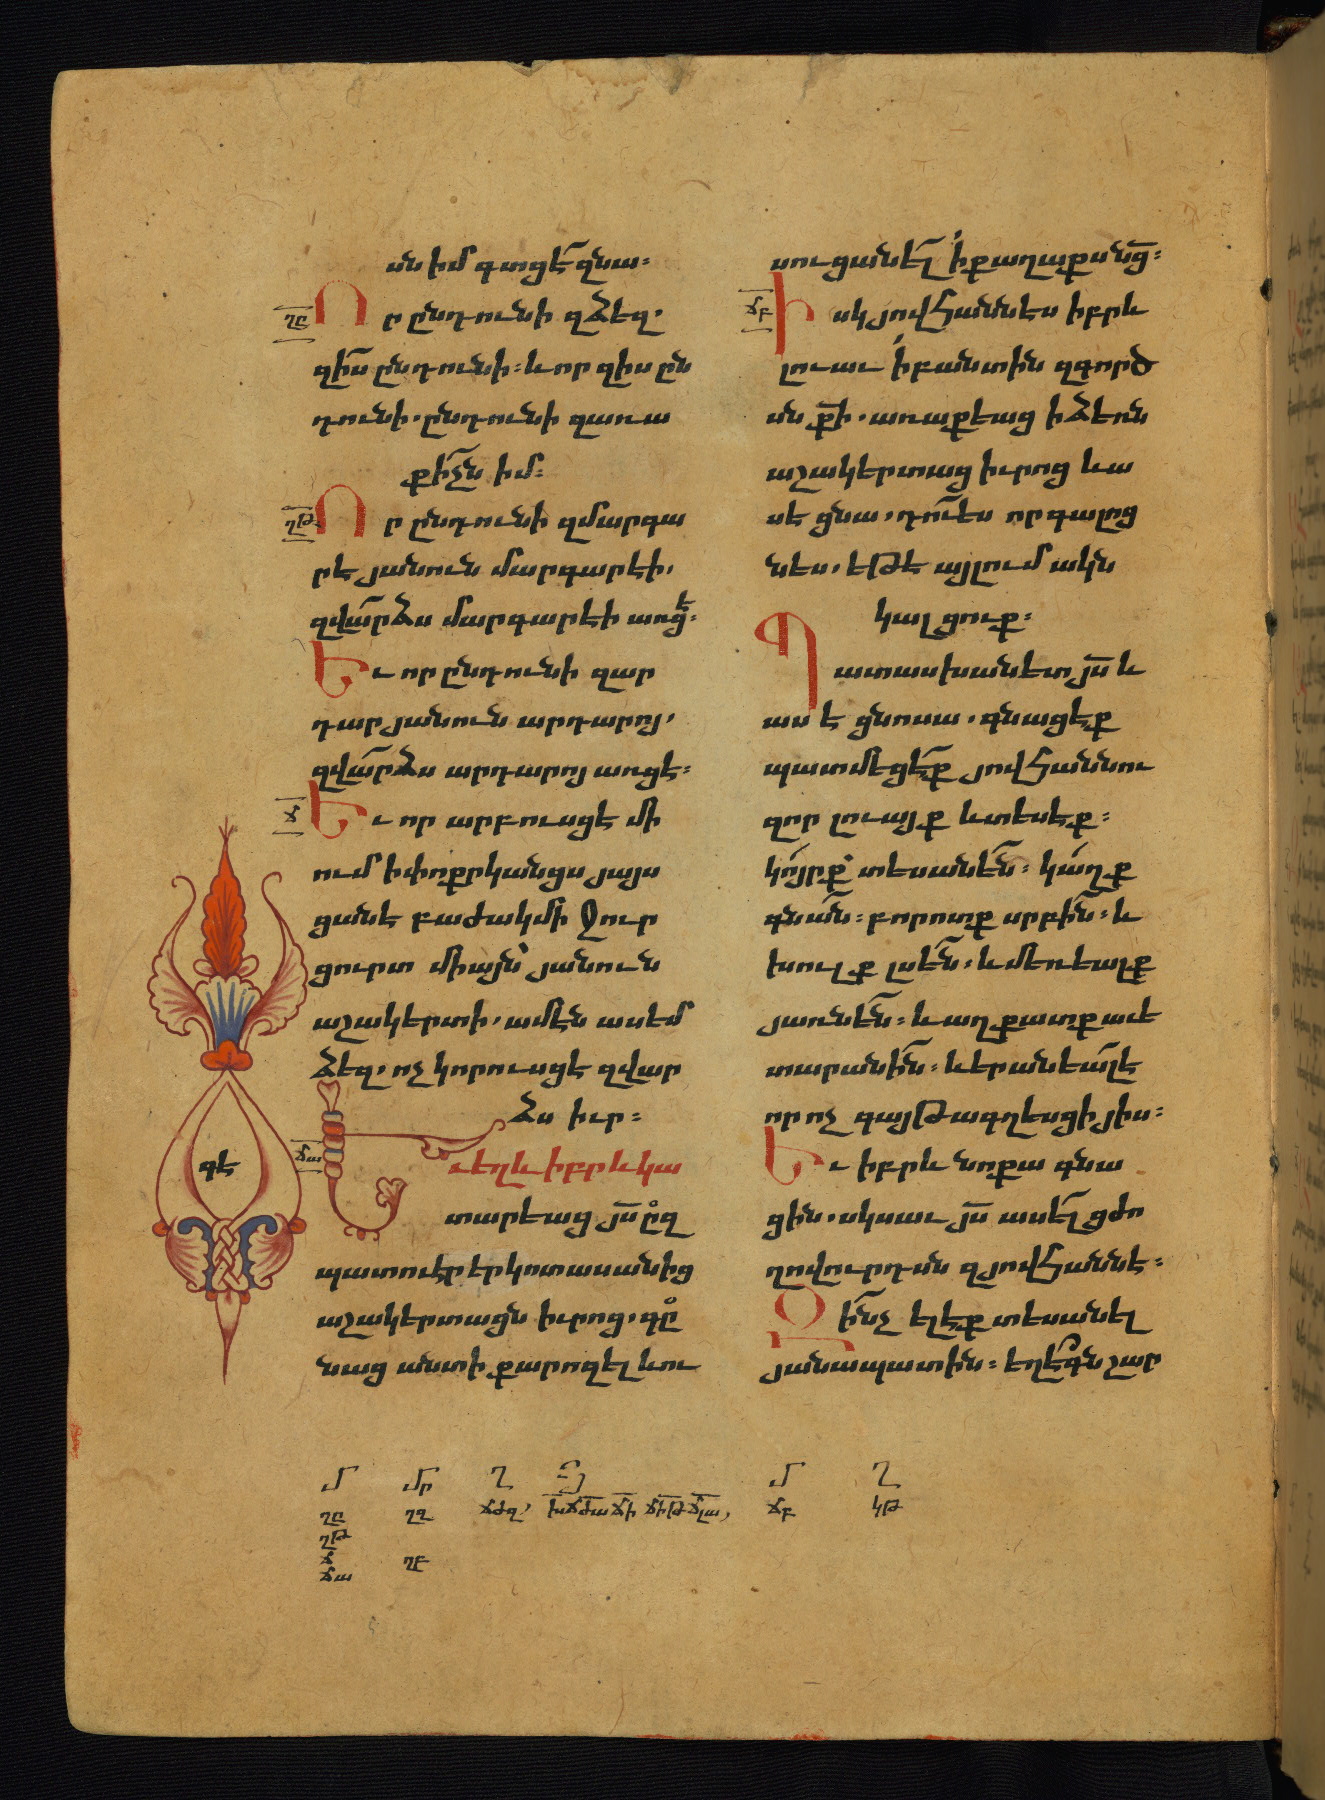 սն իմ գտցէ զնա։
ՂԸ
Որ ընդունի զձեզ.
զիս ընդունի։ և որ զիս ըն
դունի. ընդունի զառա
քիչն իմ։
ՂԹ
Որ ընդունի զմարգա
րէ յանուն մարգարէի.
զվարձս մարգարէի առցէ։
Եւ որ ընդունի զար
դար յանուն արդարոյ.
զվարձս արդարոյ առցէ։
Ճ
Եւ որ արբուսցէ մի
ում ի փոքրկանցս յայս
ցանէ բաժակ մի ջուր
ցուրտ միայն՝ յանուն
աշակերտի. ամէն ասեմ
ձեզ. ոչ կորուսցէ զվար
ձս իւր։
ՃԱ
Եւ եղև իբրև կա
տարեաց յս ըզ
պատուէր երկոտասանից
աշակերտացն իւրոց. գը
նաց անտի քարոզել և ու
գէ
սուցանել ի քաղաքս նց։
ՃԲ
Իսկ յովհաննէս իբրև
լուաւ ի բանտին զգործ
սն քի. առաքեաց ի ձեռն
աշակերտաց իւրոց և ա
սէ ցնա. դու՞ ես որ գալոց
ն ես. եթէ այլում ակն
կալցուք։
Պատասխանի ետ յս և
աս է ցնոսա. գնացէք
պատմեցէք յովհաննու
զոր լուայք և տեսէք։
կոյրք տեսանեն։ կաղք
գնան։ բորոտք սրբին։ և
խուլք լսեն. և մեռեալք
յառնեն։ և աղքատք աւե
տարանին։ և երանեալ է
որ ոչ գայթագղեսցի յիս։
Եւ իբրև նոքա գնա
ցին. սկսաւ յս ասել ցժո
ղովուրդսն զյովհաննէ։
Զինչ ելէք տեսանել
յանապատին։ եղէգն շար
Մ Մր Ղ Յ Մ Ղ
ՂԸ ՂԶ ՃԺԶ, ԽՃԺԱՃԻ ՃԻԹՃԼԱ, ՃԲ ԿԹ
ՂԹ
Ճ ՂԲ
ՃԱ